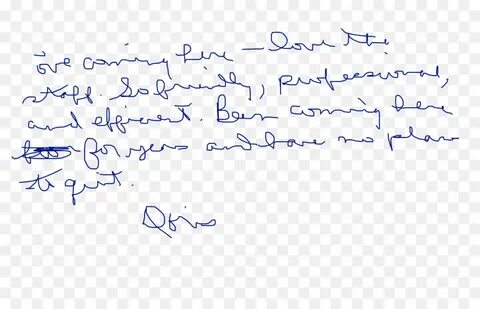 love coming here – love the
staff. So friendly, professional,
and efficient. Been coming here
for years and have no plans
to quit.